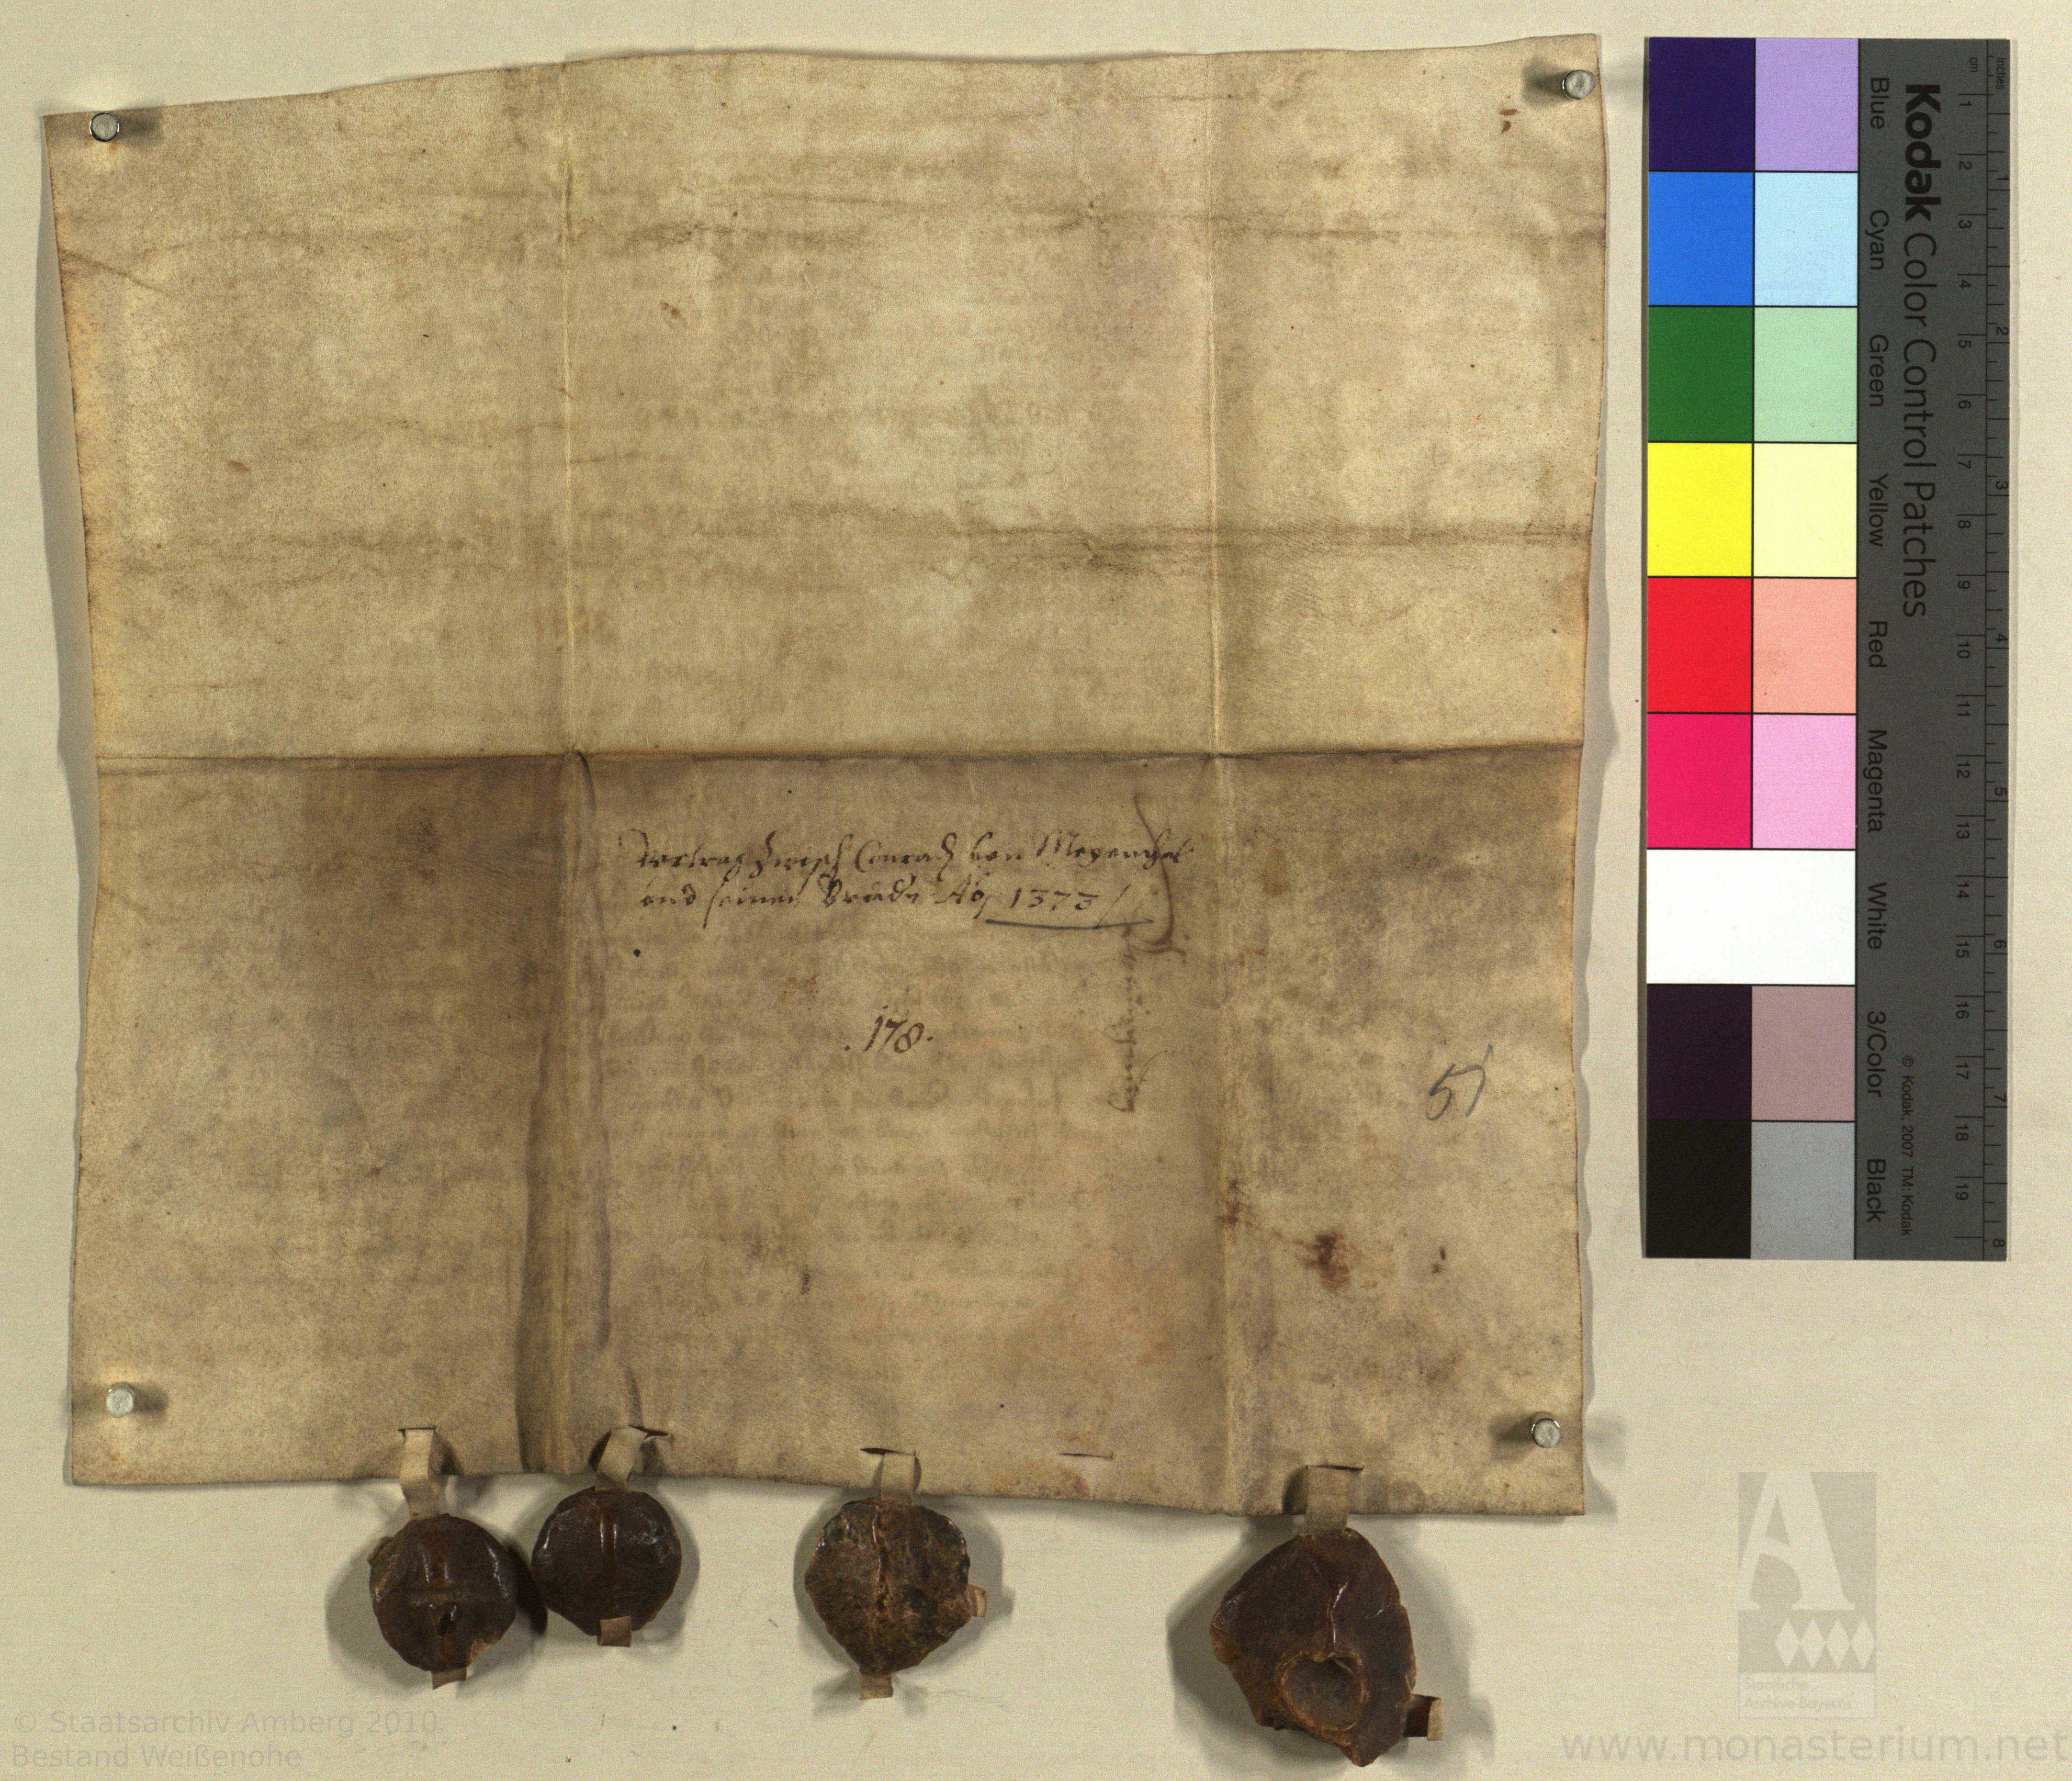 Vertrag Zwisch Conrad von Megenthal
vnd seinen Brud'n Ao 1373
.178.
51
Kodak Color Control Patches
Blue Cyan Green Yellow Red Magenta White 3/Color Black
© Kodak, 2007 TM: Kodak
cm 1 2 3 4 5 6 7 8 9 10 11 12 13 14 15 16 17 18 19
inches 1 2 3 4 5 6 7 8
Staatliche
Archive Bayerns
© Staatsarchiv Amberg 2010
Bestand Weißenohe
www.monasterium.net